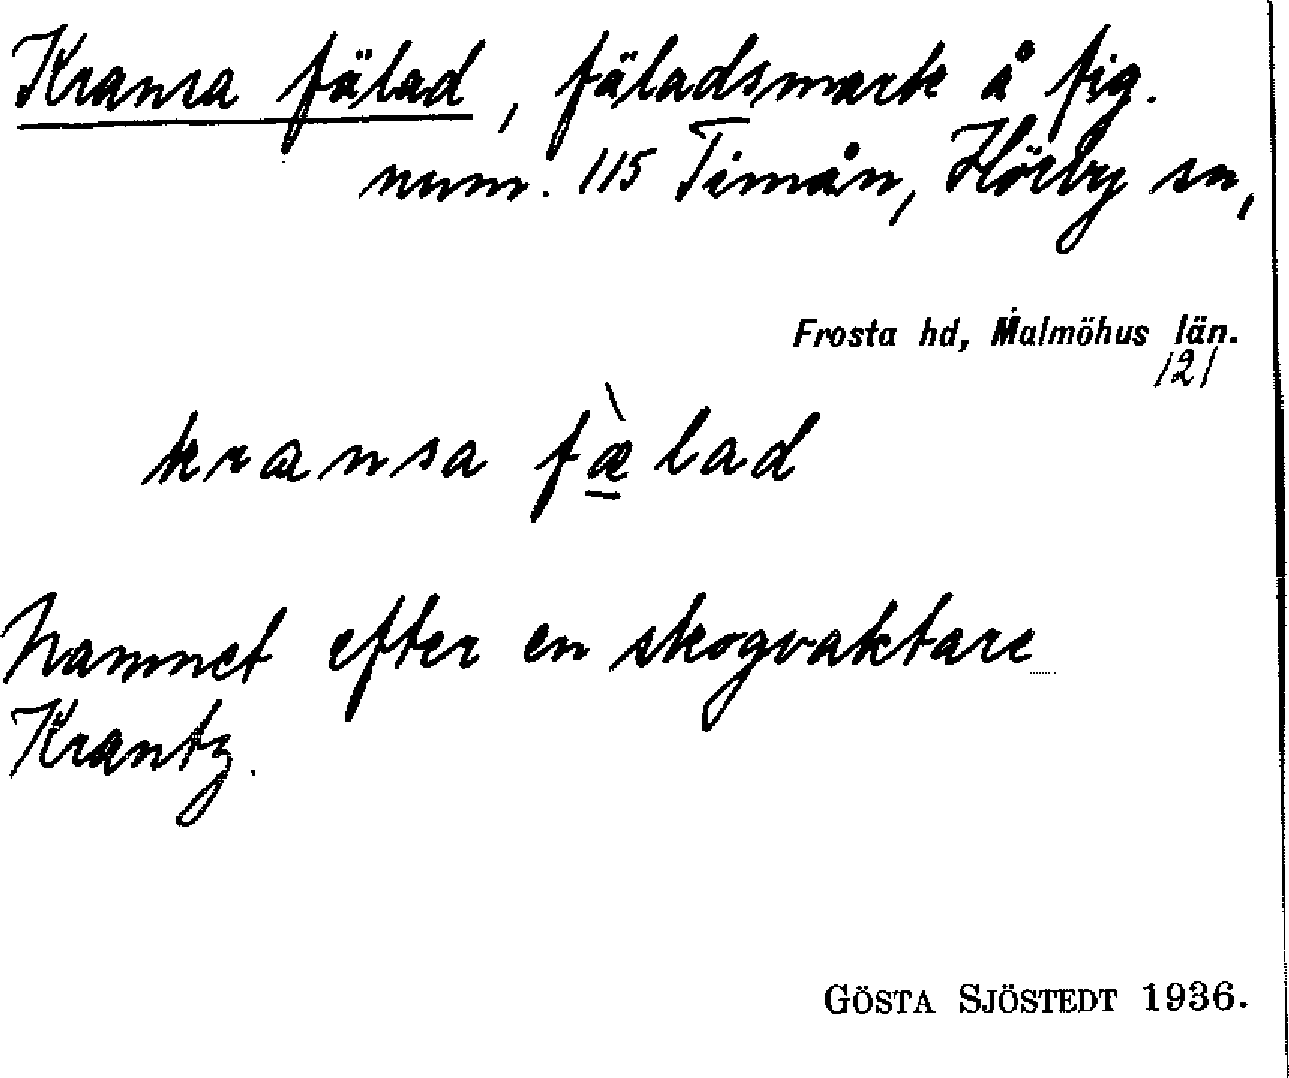 Kransa fälad, fäladsmark å fig.
num. 115 Timån, Hörby sn,
Frosta hd, Malmöhus län.
121
kransa fæ̀lad
Namnet efter en skogvaktare
Krantz.
GÖSTA SJÖSTEDT 1936.